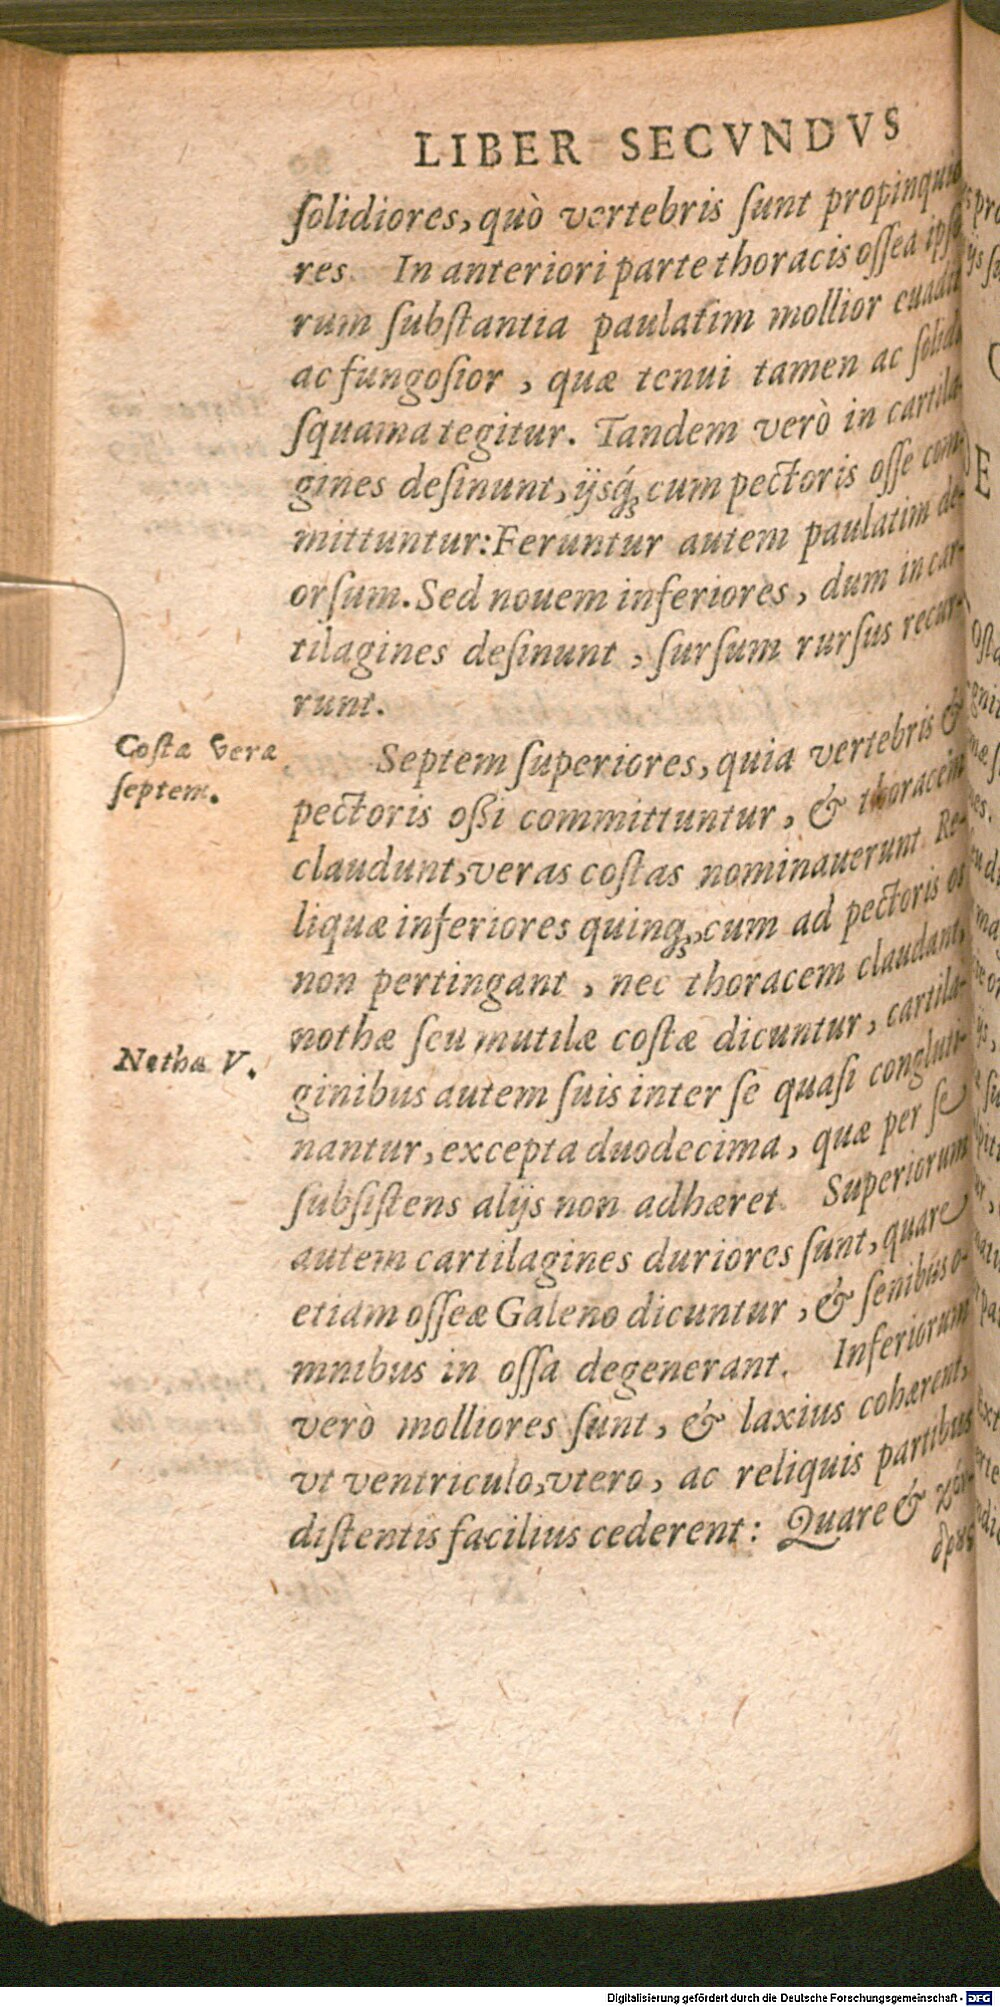 LIBER SECVNDVS
ſolidiores, quò vertebris ſunt propinquio
res. In anteriori parte thoracis oſſea ipſa
rum ſubſtantia paulatim mollior euadit
ac fungoſior, quæ tenui tamen ac ſolida
ſquama tegitur. Tandem verò in cartila-
gines deſinunt, ijsq́; cum pectoris oſſe com-
mittuntur: Feruntur autem paulatim de-
orſum. Sed nouem inferiores, dum in car-
tilagines deſinunt, ſurſum rurſus recur-
runt.
Coſtæ veræ
ſeptem.
Septem ſuperiores, quia vertebris &
pectoris oßi committuntur, & thoracem
claudunt, veras coſtas nominauerunt. Re-
liquæ inferiores quinq;, cum ad pectoris os
non pertingant, nec thoracem claudant,
Nothæ V.
nothæ ſeu mutilæ coſtæ dicuntur, cartila-
ginibus autem ſuis inter ſe quaſi congluti-
nantur, excepta duodecima, quæ per ſe
ſubſiſtens alijs non adhæret. Superiorum
autem cartilagines duriores ſunt, quare
etiam oſſeæ Galeno dicuntur, & ſenibus o-
mnibus in oſſa degenerant. Inferiorum
verò molliores ſunt, & laxius cohærent,
vt ventriculo, vtero, ac reliquis partibus
diſtentis facilius cederent: Quare &